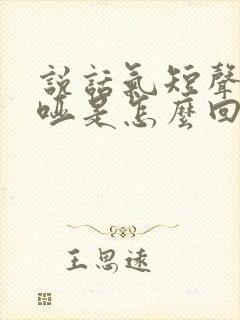 説話氣短聲
啞是怎麼回
王思遠